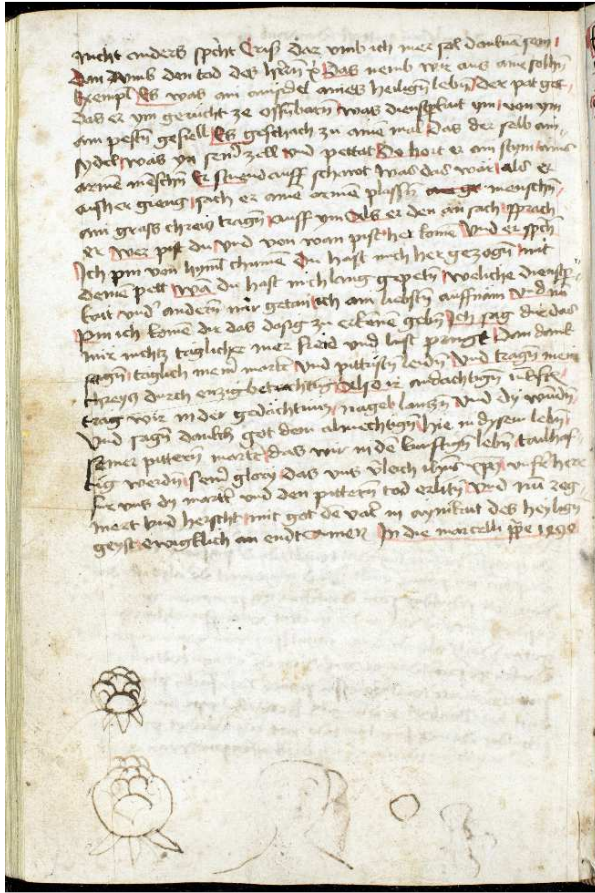 nicht anders spricht Criss dar vmb ich mer sol danknem sein
Dan vmb den tod des hern Das nemb wir aus aine solhn
Exempl Es was ain ainsidel aines heiligen lebn Der pat got
das er ym gerucht ze offnbarn was dienstperkait ym von ym
am pestn gefell Es geschach zu aine mal das der selb ain
sydel was yn seiner zell vnd pettat Do hort er ain stym aines
armen menschn Er stuend auff schawt was das wär als er
ausher gieng sach er aine armen plossn menschn
ain gross chreitz tragn auff ym Als er den an sach sprach
er wer pist du vnd von wan pist her kome vnd er spch
Ich pin von himel chumen Du hast mich her gezogn mit
deinem pett wa du hast mich lang gepetn weliche dienstper
kait vnd andern mir getan ich am liebstn auffnäm vnd nu
pin ich kome dir das dosig zu erkenne gebn Ich sag dir das
mir nichtz täglicher mer freid vnd lust pringt Dem dank
sagn täglich meiner martr vnd pittristn leidn vnd tragn mein
chreytz durch enzig betrachtig Also ir andachtign
trag wir in der gedächtnus nagel lantzn vnd dy wundn
vnd sagn dankch got dem almechtign hie in dysem lebn
seiner pittern martr das wir in de kunftign lebn tailhaf
tig werdn seiner glory das vns vleich ihus xps vnser here
der vns dy martr vnd den pittern tod erlitn vnd nu reg
niert vnd herscht mit got de vat in aynikait des heyligen
geyst ewigklich an endt Amen In die marcelli ppe 1498